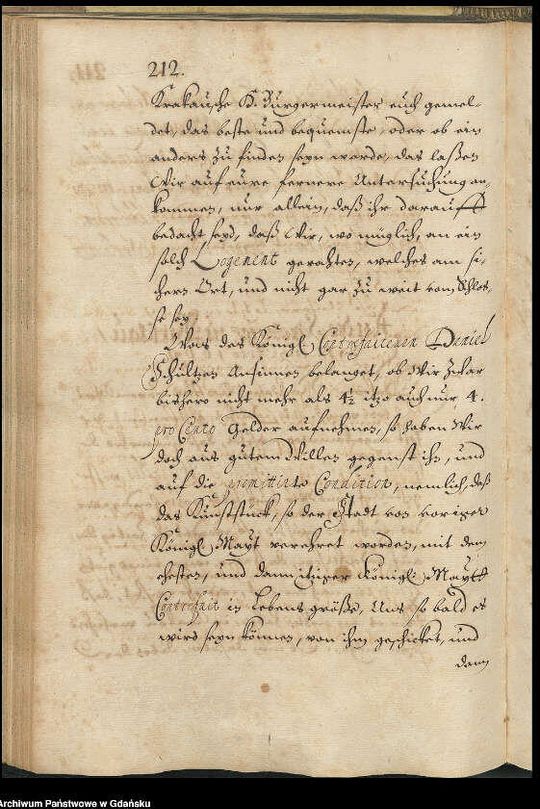 212.
Krakausche H. Burgermeister euch gemel-
det, das beste und bequemste, oder ob ein
anders zu finden seyn werde, das laßen
Wir auf eure fernere Untersuchung an-
kommen, nur allein, daß ihr darauff
bedacht seyd, daß Wir, wo müglich, an ein
solch Logement gerahten, welches am si-
chern Ort, und nicht gar zu weit vom Schlos-
se sey.
Was des Königl. Contrefaiteurn Daniel
Schultzen Ansinnen belanget, ob Wir zwar
bishero nicht mehr als 4½ itzo auch nur 4.
pro Cento Gelder aufnehmen, so haben Wir
doch aus gutem Willen gegenst ihn, und
auf die promittirte Condition, nemlich, daß
das Kunststück, so der Stadt von voriger
Königl. Maytt verehret worden, mit dem
ehesten, und dann itziger Königl. Maytt
Contrefait in Lebens größe, Uns so bald es
wird seyn können, von ihm geschicket, und
dann
Archiwum Państwowe w Gdańsku